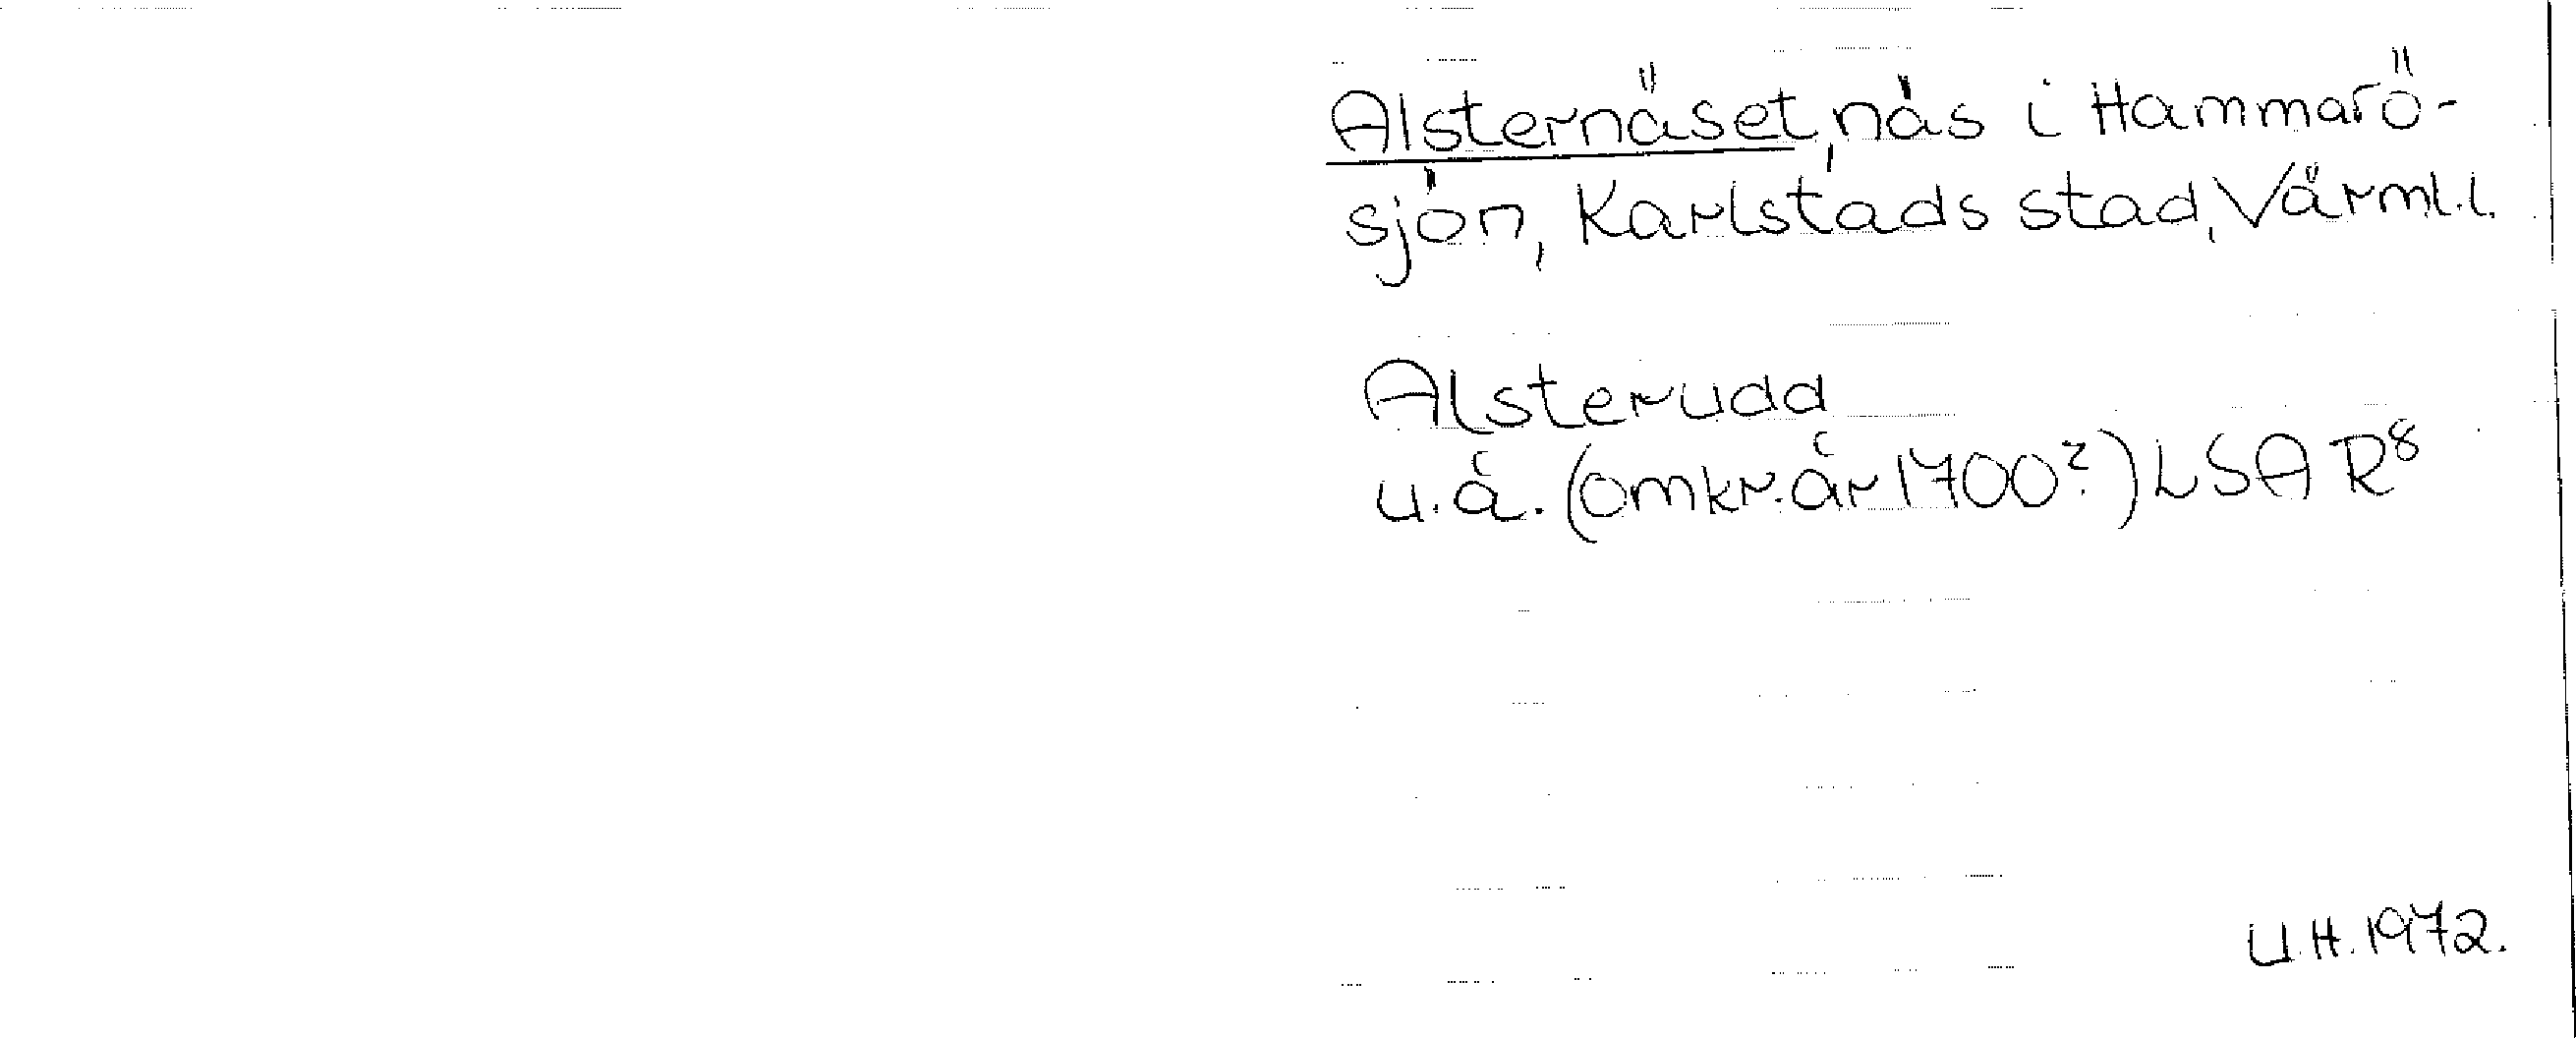 Alsternäset, näs i Hammarö-
sjön, Karlstads stad, Värml.l.
Alsterudd
u.å. (omkr. år 1700?) LSA R⁸
U.H. 1972.